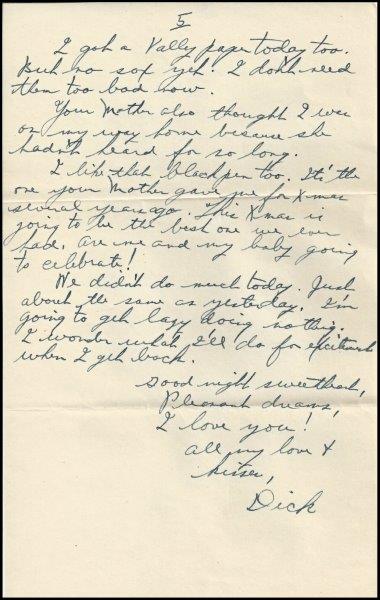 5
I got a Vally paper today too.
But no sox yet. I don't need
them too bad now.
Your Mother also thought I was
on my way home because she
hadn't heard for so long.
I like that black pen too. It's the
one your Mother gave me for X-mas
several years ago. This X-mas is
going to be the best one we ever
had. Are me and my baby going
to celebrate!
We didn't do much today. Just
about the same as yesterday. I'm
going to get lazy doing nothing.
I wonder what I'll do for excitement
when I get back.
Good night sweetheart,
Pleasant dreams,
I love you!
all my love &
kisses,
Dick